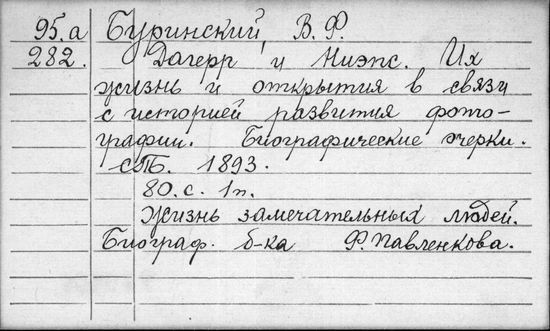 95.а Буринский В. Ф.
282. Дагерр и Ниэпс. Их
жизнь и открытия в связи
с историей развития фото-
графии. Биографические очерки.
СПБ. 1893.
80.с. 1п.
Жизнь замечательных людей.
Биограф. б-ка Ф.Павленкова.